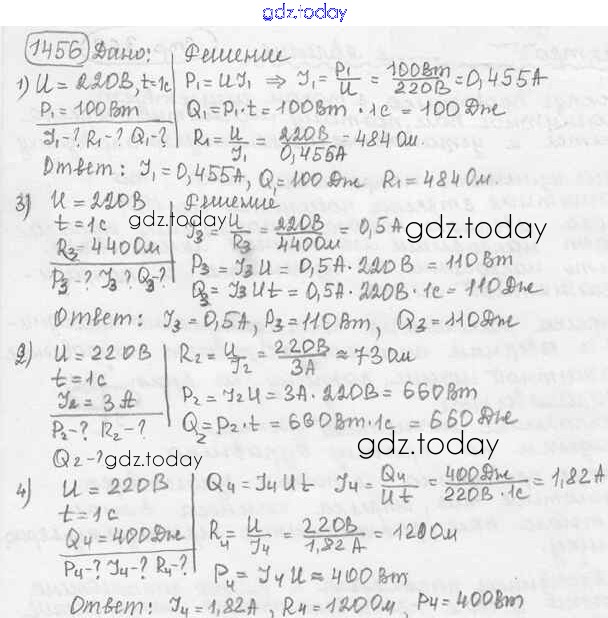 gdz.today
1456 Дано: Решение
1) U = 220В, t=1с P₁ = UI₁ ⇒ I₁ = P₁/U = 100Вт/220В = 0,455А
P₁ = 100Вт Q₁ = P₁·t = 100Вт·1с = 100Дж
I₁-? R₁-? Q₁-? R₁ = U/I₁ = 220В/0,455А = 484Ом
Ответ: I₁ = 0,455А, Q = 100Дж R₁ = 484Ом
3) U = 220В Решение
t = 1с I₃ = U/R₃ = 220В/440Ом = 0,5А
gdz.today gdz.today
R₃ = 440Ом
P₃-? I₃? Q₃-? P₃ = I₃U = 0,5А·220В = 110Вт
Q₃ = I₃Ut = 0,5А·220В·1с = 110Дж
Ответ: I₃ = 0,5А P₃ = 110Вт, Q₃ = 110Дж
2) U = 220В R₂ = U/I₂ = 220В/3А ≈ 73Ом
t = 1с
I₂ = 3А P₂ = I₂U = 3А·220В = 660Вт
P₂-? R₂-? Q₂ = P₂·t = 660Вт·1с = 660Дж
Q₂-? gdz.today gdz.today
4) U = 220В Q₄ = I₄Ut I₄ = Q₄/Ut = 400Дж/220В·1с = 1,82А
t = 1с
Q₄ = 400Дж R₄ = U/I₄ = 220В/1,82А = 120Ом
P₄-? I₄-? R₄-? P₄ = I₄U ≈ 400Вт
Ответ: I₄ = 1,82А, R₄ = 120Ом, P₄ = 400Вт
gdz.today